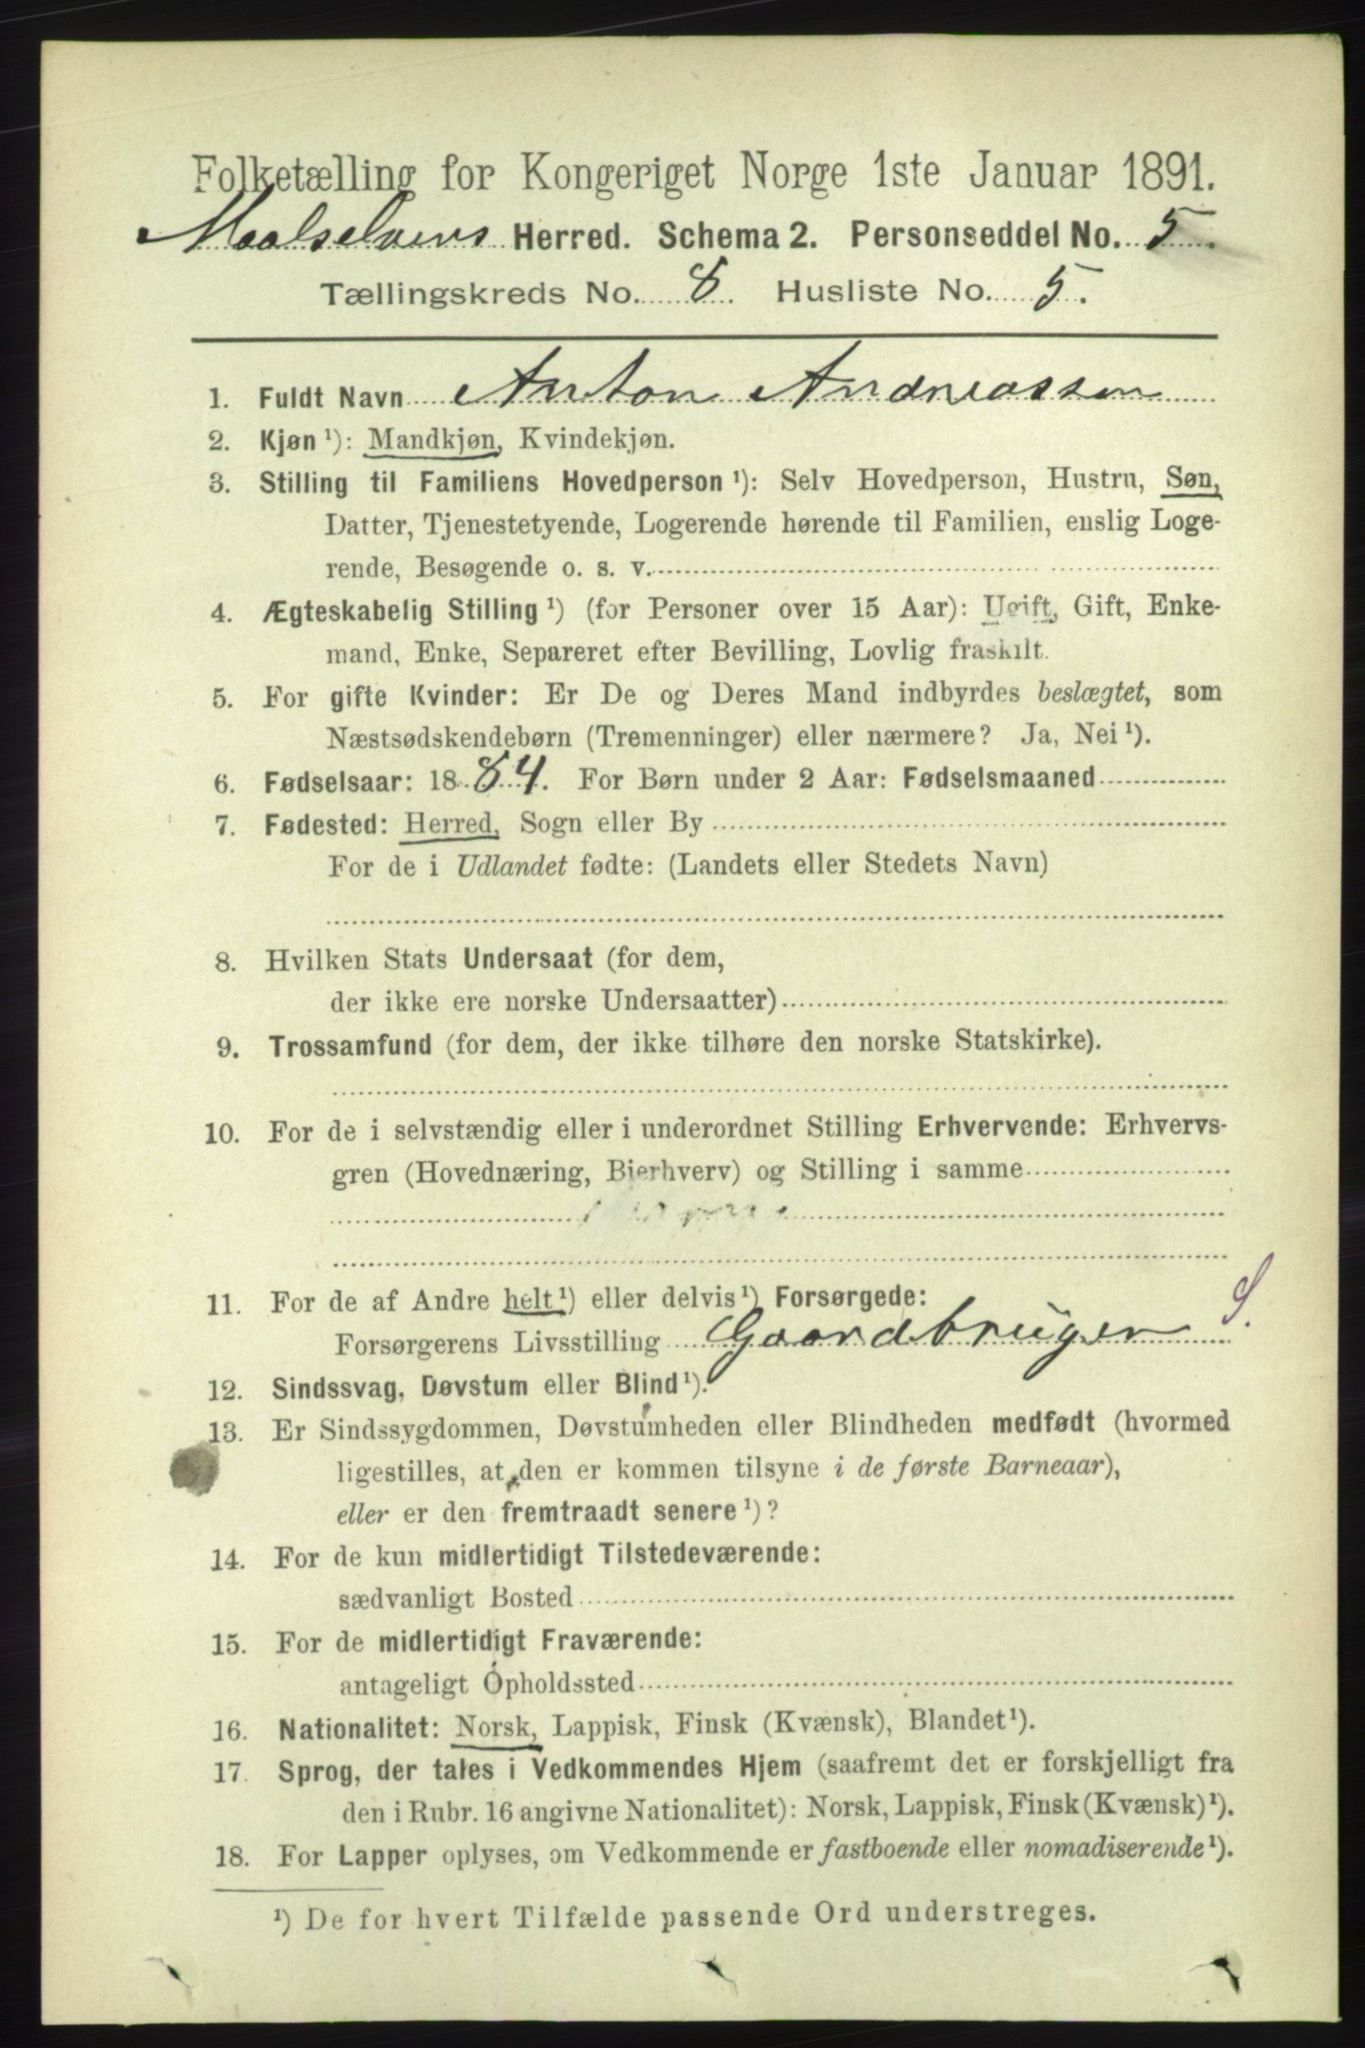 Folketælling for Kongeriget Norge 1ste Januar 1891.
Maalselvens Herred. Schema 2. Personseddel No. 5.
Tællingskreds No. 8. Husliste No. 5.
1. Fuldt Navn Anton Andreassen
2. Kjøn¹): Mandkjøn, Kvindekjøn.
3. Stilling til Familiens Hovedperson¹): Selv Hovedperson, Hustru, Søn,
Datter, Tjenestetyende, Logerende hørende til Familien, enslig Loge-
rende, Besøgende o. s. v.
4. Ægteskabelig Stilling¹) (for Personer over 15 Aar): Ugift, Gift, Enke-
mand, Enke, Separeret efter Bevilling, Lovlig fraskilt.
5. For gifte Kvinder: Er De og Deres Mand indbyrdes beslægtet, som
Næstsødskendebørn (Tremenninger) eller nærmere? Ja, Nei¹).
6. Fødselsaar: 1884. For Børn under 2 Aar: Fødselsmaaned
7. Fødested: Herred, Sogn eller By
For de i Udlandet fødte: (Landets eller Stedets Navn)
8. Hvilken Stats Undersaat (for dem,
der ikke ere norske Undersaatter)
9. Trossamfund (for dem, der ikke tilhøre den norske Statskirke).
10. For de i selvstændig eller i underordnet Stilling Erhvervende: Erhvervs-
gren (Hovednæring, Bierhverv) og Stilling i samme
11. For de af Andre helt¹) eller delvis¹) Forsørgede:
Forsørgerens Livsstilling Gaardbruger S.
12. Sindssvag, Døvstum eller Blind¹).
13. Er Sindssygdommen, Døvstumheden eller Blindheden medfødt (hvormed
ligestilles, at den er kommen tilsyne i de første Barneaar),
eller er den fremtraadt senere¹)?
14. For de kun midlertidigt Tilstedeværende:
sædvanligt Bosted
15. For de midlertidigt Fraværende:
antageligt Opholdssted
16. Nationalitet: Norsk, Lappisk, Finsk (Kvænsk), Blandet¹).
17. Sprog, der tales i Vedkommendes Hjem (saafremt det er forskjelligt fra
den i Rubr. 16 angivne Nationalitet): Norsk, Lappisk, Finsk (Kvænsk)¹).
18. For Lapper oplyses, om Vedkommende er fastboende eller nomadiserende¹).
¹) De for hvert Tilfælde passende Ord understreges.